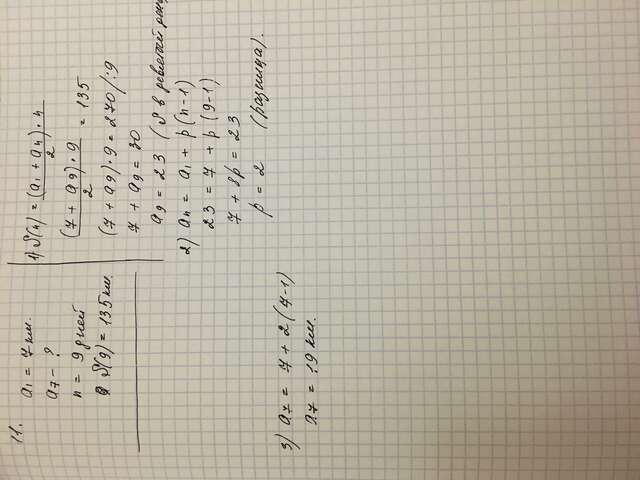 11.
a₁ = 7 км.
a₇ - ?
n = 9 дней
S(9) = 135 км.
1) S(n) = (a₁ + aₙ) · n / 2
(7 + a₉) · 9 / 2 = 135
(7 + a₉) · 9 = 270 /:9
7 + a₉ = 30
a₉ = 23 (9 в
2) aₙ = a₁ + p(n-1)
23 = 7 + p(9-1)
7 + 8p = 23
p = 2 (разница).
3) a₇ = 7 + 2(7-1)
a₇ = 19 км.